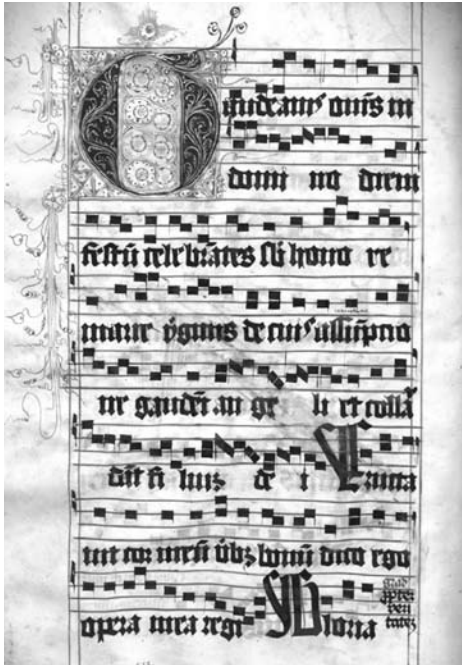 Gaudeamꝰ om̄s in
domi no diem
festū celebrātes sb̄ hono re
marie v̄ginis de cuiꝰ assūptio
ne gaudēt an ge li et collā
dāt fi liuꝫ de i Eructa
uit cor meū v̄bꝫ bonū dico ego
opera mea regi Gloria
ꝓpter
veri
tateꝫ